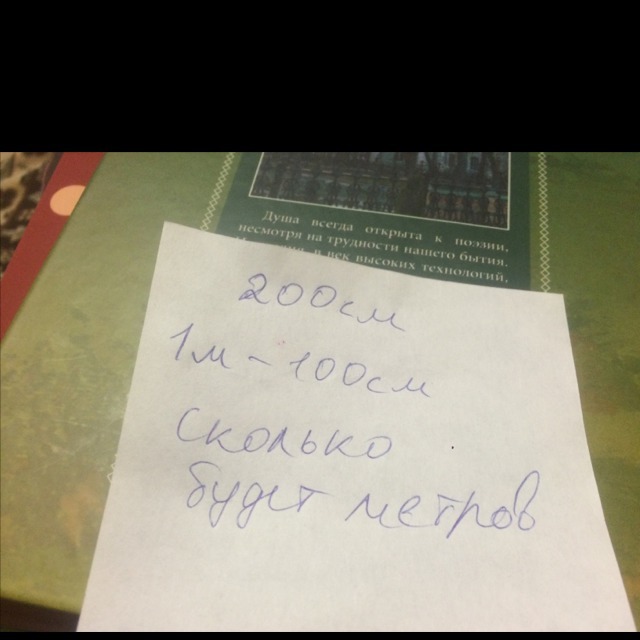 Душа всегда открыта к поэзии,
несмотря на трудности нашего бытия.
в век высоких технологий,
200см
1м - 100см
сколько
будет метров